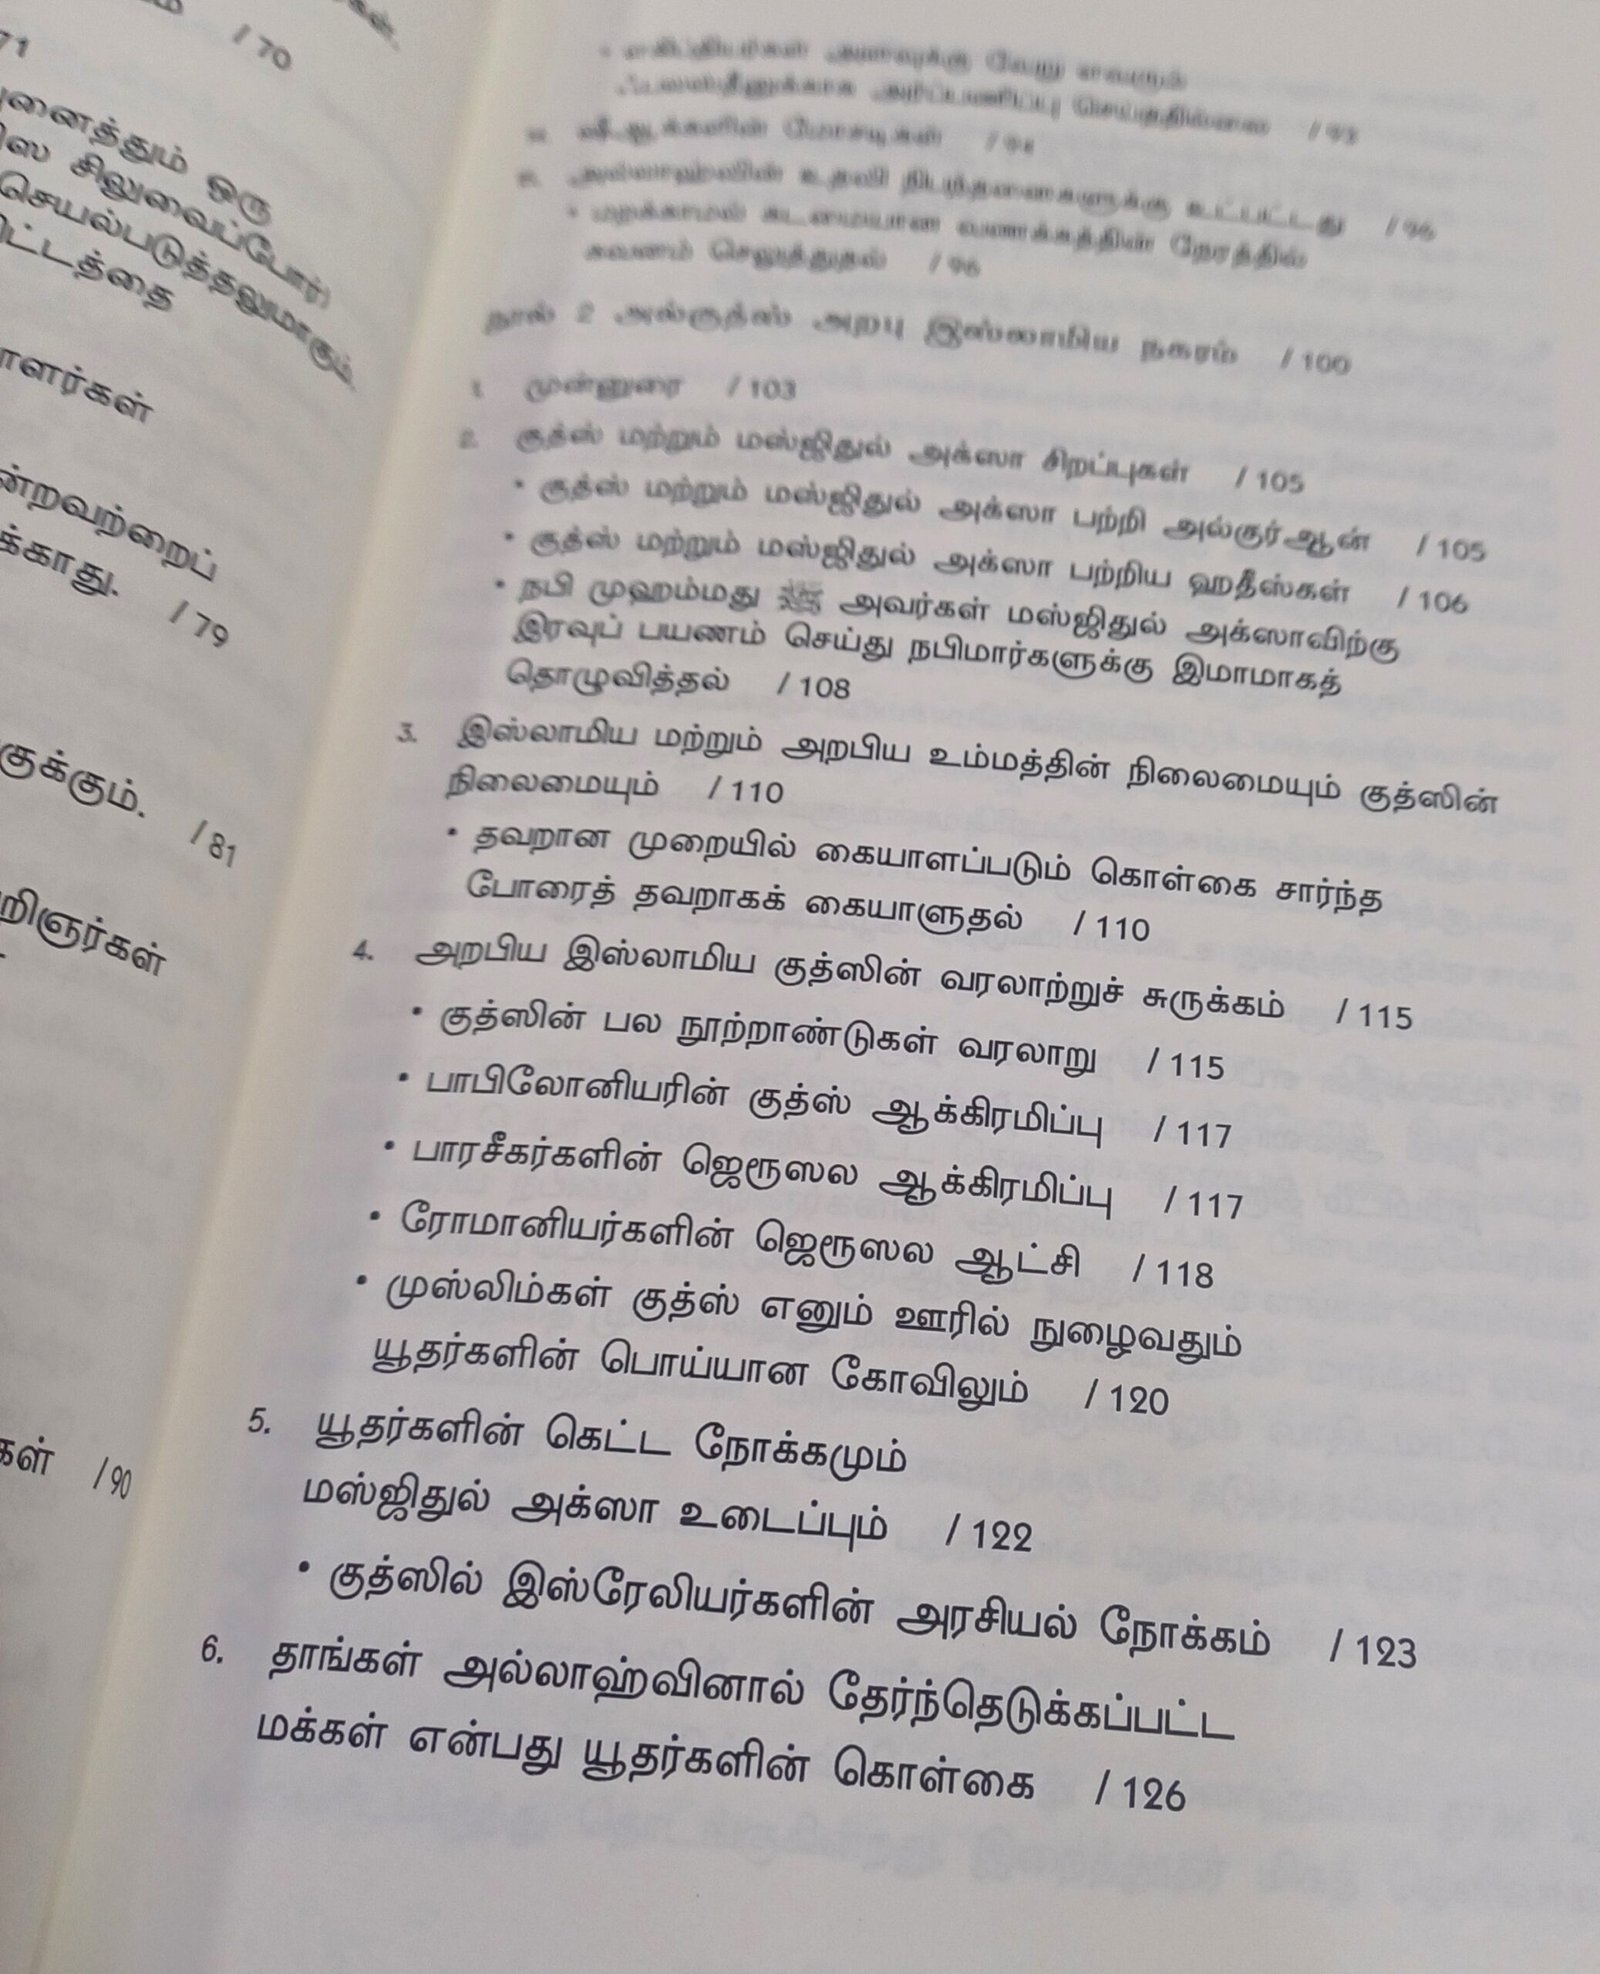 / 70
71
ஒரு
சிலுவைப்போர்)
செயல்படுத்தலுமாகும்.
/ 79
/ 81
/ 90
/ 93
/ 94
அல்லாஹ்வின் உதவி நிபந்தனைகளுக்கு உட்பட்டது / 96
• மறக்காமல் கடமையான வணக்கத்தின் நேரத்தில்
கவனம் செலுத்துதல் / 96
நூல் 2 அல்குத்ஸ் அரபு இஸ்லாமிய நகரம் / 100
1. முன்னுரை / 103
2. குத்ஸ் மற்றும் மஸ்ஜிதுல் அக்ஸா சிறப்புகள் / 105
• குத்ஸ் மற்றும் மஸ்ஜிதுல் அக்ஸா பற்றி அல்குர்ஆன் / 105
• குத்ஸ் மற்றும் மஸ்ஜிதுல் அக்ஸா பற்றிய ஹதீஸ்கள் / 106
• நபி முஹம்மது ﷺ அவர்கள் மஸ்ஜிதுல் அக்ஸாவிற்கு
இரவுப் பயணம் செய்து நபிமார்களுக்கு இமாமாகத்
தொழுவித்தல் / 108
3. இஸ்லாமிய மற்றும் அறபிய உம்மத்தின் நிலைமையும் குத்ஸின்
நிலைமையும் / 110
• தவறான முறையில் கையாளப்படும் கொள்கை சார்ந்த
போரைத் தவறாகக் கையாளுதல் / 110
4. அறபிய இஸ்லாமிய குத்ஸின் வரலாற்றுச் சுருக்கம் / 115
• குத்ஸின் பல நூற்றாண்டுகள் வரலாறு / 115
• பாபிலோனியரின் குத்ஸ் ஆக்கிரமிப்பு / 117
• பாரசீகர்களின் ஜெரூஸல ஆக்கிரமிப்பு / 117
• ரோமானியர்களின் ஜெரூஸல ஆட்சி / 118
• முஸ்லிம்கள் குத்ஸ் எனும் ஊரில் நுழைவதும்
யூதர்களின் பொய்யான கோவிலும் / 120
5. யூதர்களின் கெட்ட நோக்கமும்
மஸ்ஜிதுல் அக்ஸா உடைப்பும் / 122
• குத்ஸில் இஸ்ரேலியர்களின் அரசியல் நோக்கம் / 123
6. தாங்கள் அல்லாஹ்வினால் தேர்ந்தெடுக்கப்பட்ட
மக்கள் என்பது யூதர்களின் கொள்கை / 126